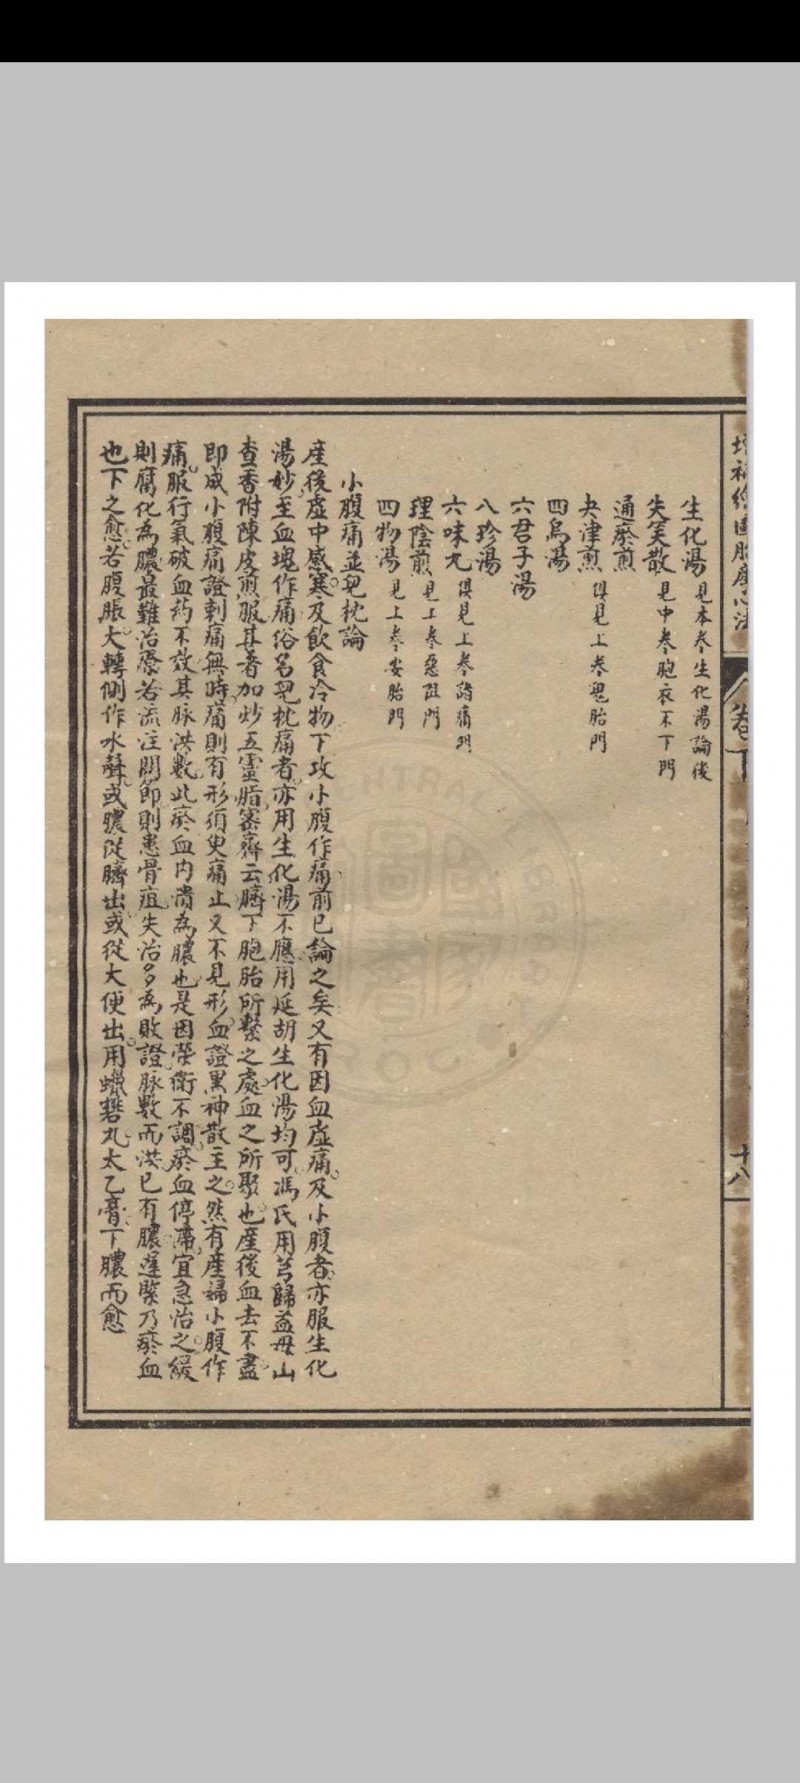 增補繪圖胎產心法
卷下
十八
生化湯 見本卷生化湯論後
失笑散 見中卷胞衣不下門
通瘀煎
決津煎 俱見上卷鬼胎門
四烏湯
六君子湯
八珍湯
六味丸 俱見上卷諸痛門
理陰煎 見上卷惡阻門
四物湯 見上卷安胎門
小腹痛並兒枕論
產後虛中感寒及飲食冷物下攻小腹作痛前已論之矣又有因血虛痛及小腹者亦服生化
湯妙至血塊作痛俗名兒枕痛者亦用生化湯不應用延胡生化湯均可馮氏用芎歸益母山
查香附陳皮煎服甚著加炒五靈脂審齋云臍下胞胎所繫之處血之所聚也產後血去不盡
即成小腹痛證刺痛無時痛則有形須臾痛止又不見形血證黑神散主之然有產婦小腹作
痛服行氣破血药不效其脉洪數此瘀血內潰為膿也是因榮衛不調瘀血停滯宜急治之緩
則腐化為膿最難治療若流注關節則患骨疽失治多為敗證脉數而洪已有膿遲緊乃瘀血
也下之愈若腹脹大轉側作水聲或膿從臍出或從大便出用蠟礬丸太乙膏下膿而愈
CENTRAL
ROC